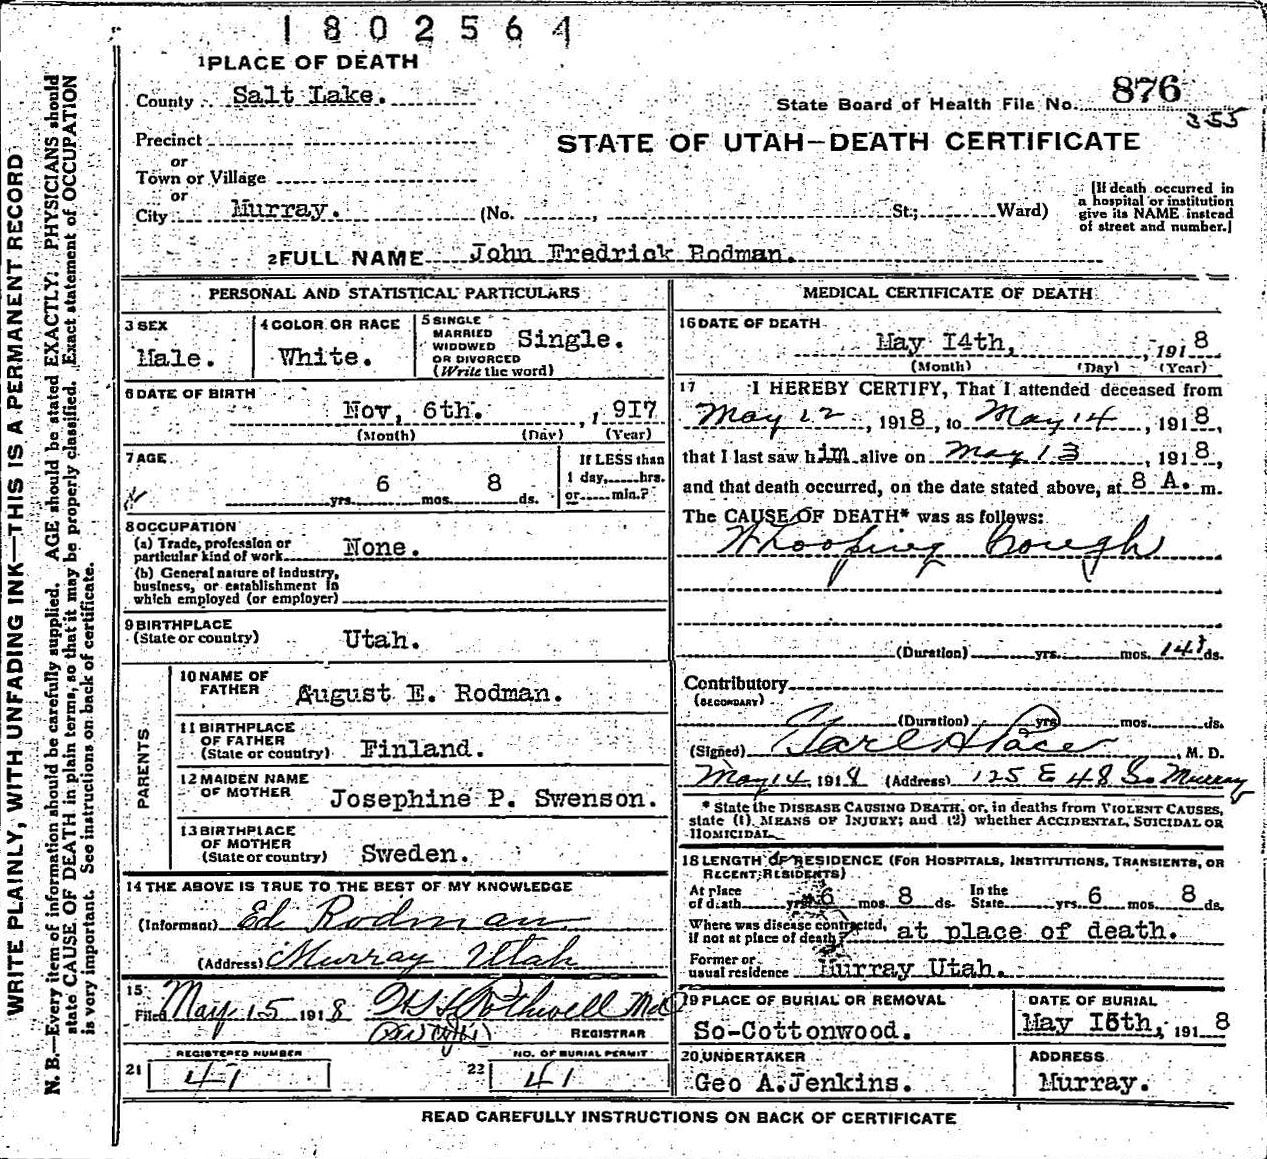 1802564
1 PLACE OF DEATH
County Salt Lake.
State Board of Health File No. 876
355
Precinct
or
Town or Village
or
City Murray. (No. , St; Ward)
STATE OF UTAH—DEATH CERTIFICATE
[If death occurred in
a hospital or institution
give its NAME instead
of street and number.]
2 FULL NAME John Fredrick Rodman.
PERSONAL AND STATISTICAL PARTICULARS
3 SEX
Male.
4 COLOR OR RACE
White.
5 SINGLE
MARRIED
WIDOWED
OR DIVORCED
(Write the word)
Single.
6 DATE OF BIRTH
Nov, 6th. , 1917
(Month) (Day) (Year)
7 AGE
6 8
yrs. mos. ds.
If LESS than
1 day, hrs.
or min.?
8 OCCUPATION
(a) Trade, profession or
particular kind of work None.
(b) General nature of industry,
business, or establishment in
which employed (or employer)
9 BIRTHPLACE
(State or country) Utah.
PARENTS
10 NAME OF
FATHER August E. Rodman.
11 BIRTHPLACE
OF FATHER
(State or country) Finland.
12 MAIDEN NAME
OF MOTHER Josephine P. Swenson.
13 BIRTHPLACE
OF MOTHER
(State or country) Sweden.
14 THE ABOVE IS TRUE TO THE BEST OF MY KNOWLEDGE
(Informant) Ed Rodman
(Address) Murray Utah
15
Filed May 15 1918 Rothwell MD
REGISTRAR
REGISTERED NUMBER
21 41
NO. OF BURIAL PERMIT
22 41
MEDICAL CERTIFICATE OF DEATH
16 DATE OF DEATH
May 14th, , 1918
(Month) (Day) (Year)
17 I HEREBY CERTIFY, That I attended deceased from
May 12 , 1918, to May 14 , 1918,
that I last saw him alive on May 13 , 1918,
and that death occurred, on the date stated above, at 8 A. m.
The CAUSE OF DEATH* was as follows:
Whooping Cough
(Duration) yrs. mos. 14 ds.
Contributory
(SECONDARY)
(Duration) yrs. mos. ds.
(Signed) , M. D.
May 14 1918 (Address) 125 E 48 So Murray
* State the DISEASE CAUSING DEATH, or, in deaths from VIOLENT CAUSES,
state (1) MEANS OF INJURY; and (2) whether ACCIDENTAL, SUICIDAL OR
HOMICIDAL.
18 LENGTH OF RESIDENCE (FOR HOSPITALS, INSTITUTIONS, TRANSIENTS, OR
RECENT RESIDENTS)
At place
of death yrs. 6 mos. 8 ds. In the
State yrs. 6 mos. 8 ds.
Where was disease contracted,
if not at place of death? at place of death.
Former or
usual residence Murray Utah.
19 PLACE OF BURIAL OR REMOVAL
So-Cottonwood.
DATE OF BURIAL
May 15th, 1918
20 UNDERTAKER
Geo A.Jenkins.
ADDRESS
Murray.
READ CAREFULLY INSTRUCTIONS ON BACK OF CERTIFICATE
WRITE PLAINLY, WITH UNFADING INK—THIS IS A PERMANENT RECORD
N. B.—Every item of information should be carefully supplied. AGE should be stated EXACTLY. PHYSICIANS should
state CAUSE OF DEATH in plain terms, so that it may be properly classified. Exact statement of OCCUPATION
is very important. See instructions on back of certificate.